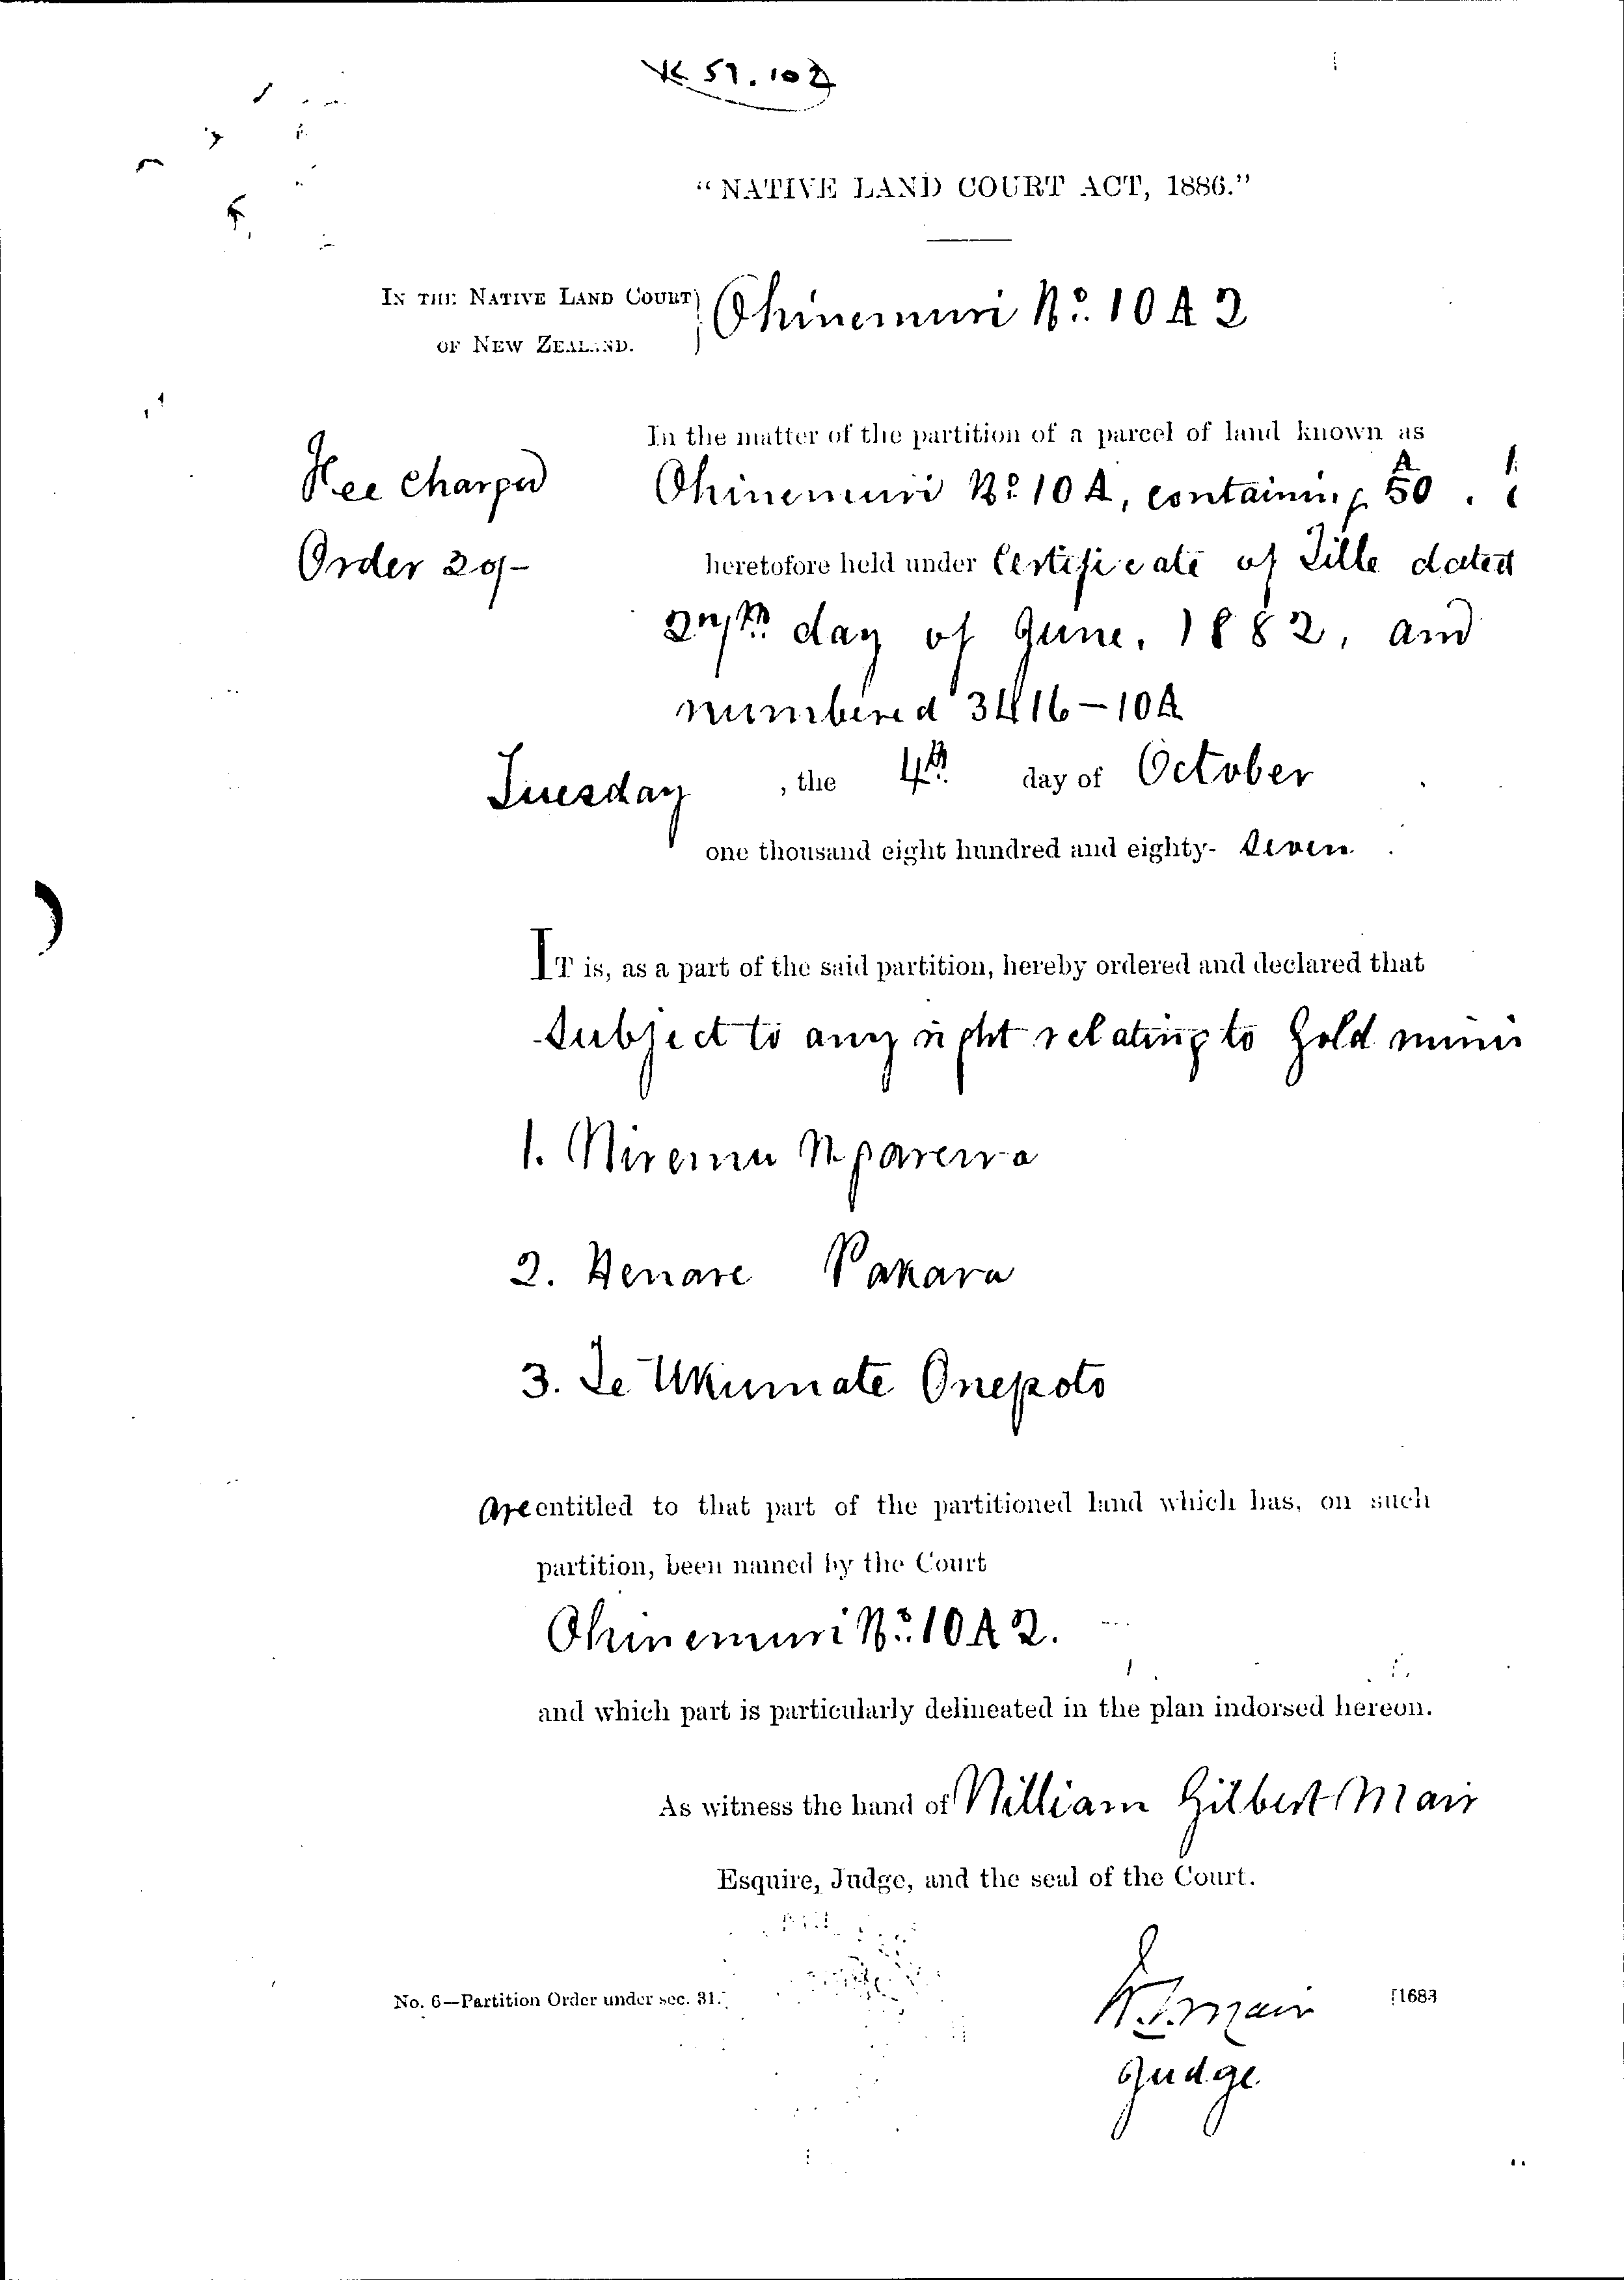 K 59.102
"NATIVE LAND COURT ACT, 1886."
IN THE NATIVE LAND COURT
OF NEW ZEALAND.
Ohinemuri No. 10 A 2
In the matter of the partition of a parcel of land known as
Fee Charged
Ohinemuri No 10 A, containing 50 A.
Order 20/-
heretofore held under Certificate of Title dated
27th day of June, 1882, and
numbered 3416-10A
Tuesday, the 4th day of October
one thousand eight hundred and eighty-seven
IT is, as a part of the said partition, hereby ordered and declared that
Subject to any right relating to Gold
1. Wiremu Ngarewa
2. Henare Pakara
3. Te Ukumate Onepoto
are entitled to that part of the partitioned land which has, on such
partition, been named by the Court
Ohinemuri No. 10 A 2.
and which part is particularly delineated in the plan indorsed hereon.
As witness the hand of William Gilbert Mair
Esquire, Judge, and the seal of the Court.
No. 6—Partition Order under sec. 31.
W.G. Mair
[1683
Judge